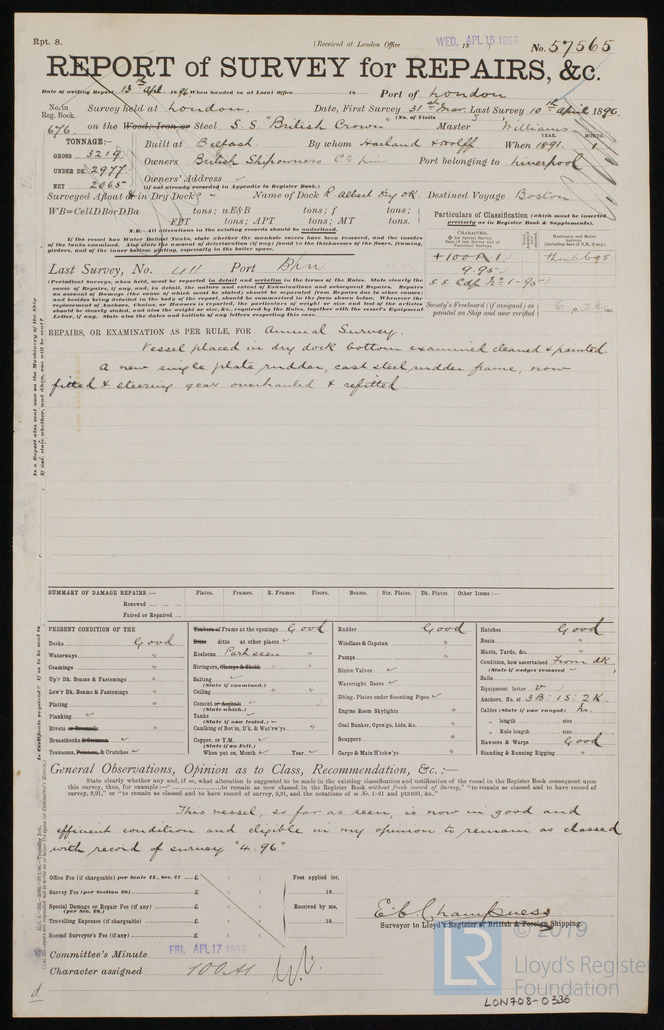 Rpt. 8.
(Received at London Office WED. APL 15 1896 18
No. 57565
REPORT of SURVEY for REPAIRS, &c.
Date of writing Report 13th Apl. 1896 When handed in at Local Office 18 Port of London
No. in Reg. Book.
Survey held at London. Date, First Survey 31st Mar. Last Survey 10th April 1896
(No. of Visits 3
676 on the Wood, Iron or Steel S.S. "British Crown" Master Williams
TONNAGE:—
GROSS 3219
UNDER DK. 2977
NET 2065
Built at Belfast By whom Harland & Wolff When 1891. 1
YEAR. MONTH.
Owners British Shipowners Co Lim Port belonging to Liverpool
Owners' Address
(if not already recorded in Appendix to Register Book.)
Surveyed Afloat & in Dry Dock? Name of Dock R Albert Dry Dk. Destined Voyage Boston
WB=CellDBorDBa tons; uE&B tons; f tons;
FPT tons; APT tons; MT tons.
N.B.—All alterations in the existing records should be underlined.
If the vessel has Water Ballast Tanks, state whether the manhole covers have been removed, and the insides
of the tanks examined. Also state the amount of deterioration (if any) found in the thicknesses of the floors, framing,
girders, and of the inner bottom plating, especially in the boiler space.
Particulars of Classification (which must be inserted
precisely as in Register Book & Supplements).
+100A1
9.95
Last Survey, No. Port
(Periodical Surveys, when held, must be reported in detail and seriatim in the terms of the Rules. State clearly the
cause of Repairs, if any, and, in detail, the nature and extent of Examinations and subsequent Repairs. Repairs
on account of Damage (the cause of which must be stated) should be separated from Repairs due to other causes;
and besides being detailed in the body of the report, should be summarised in the form shown below. Whenever the
replacement of Anchors, Chains, or Hawsers is reported, the particulars of weight or size and test of the articles
should be clearly stated, and also the weight or size, &c., required by the Rules, together with the vessel's Equipment
Letter, if any. State also the dates and initials of any letters respecting this case.)
Society's Freeboard (if assigned) as
painted on Ship and now verified
REPAIRS, OR EXAMINATION AS PER RULE, FOR Annual Survey.
Vessel placed in dry dock bottom examined cleaned & painted.
A new single plate rudder, cast steel rudder frame, now
fitted & steering gear overhauled & refitted
SUMMARY OF DAMAGE REPAIRS:— Plates. Frames. R. Frames. Floors. Beams. Str. Plates. Dk. Plates. Other Items:—
Renewed
Faired or Repaired
PRESENT CONDITION OF THE
Decks Good
Waterways "
Coamings "
Up'r Dk. Beams & Fastenings "
Low'r Dk. Beams & Fastenings "
Plating "
Planking
Rivets or Treenails "
Breasthooks & Stemson
Transoms, Pointers, & Crutches
Timbers of Frame at the openings Good
Ditto ditto at other places
Keelsons Part seen
Stringers, Clamps & Shelfs "
Salting
(State if examined.)
Ceiling "
Cement or Asphalt
(State which.)
Tanks
(State if now tested.)
Caulking of Bot'm, D'k, & Wat'rw'ys "
Copper, or Y.M.
(State if on Felt.)
When put on, Month Year
Rudder Good
Windlass & Capstan "
Pumps "
Sluice Valves
Watertight Doors
Dblng. Plates under Sounding Pipes
Engine Room Skylights "
Coal Bunker, Open'gs, Lids, &c. "
Scuppers "
Cargo & Main H'tchw'ys "
Hatches Good
Boats "
Masts, Yards, &c. "
Condition, how ascertained From dk
(State if wedges removed)
Sails
Equipment letter V
Anchors, No. of 3B : 1S : 2K
Cables (State if now ranged) No.
„ length size
„ Rule length size
Hawsers & Warps Good
Standing & Running Rigging "
General Observations, Opinion as to Class, Recommendation, &c. :—
State clearly whether any, and if so, what alteration is suggested to be made in the existing classification and notification of the vessel in the Register Book consequent upon
this survey, thus, for example :—"..............to remain as now classed in the Register Book without fresh record of Survey," "to remain as classed and to have record of
survey, 9,91," or "to remain as classed and to have record of survey, 9,91, and the notations of ss No. 1–91 and ptND91, &c."
This vessel, so far as seen, is now in good and
efficient condition and eligible in my opinion to remain as classed
with record of survey "4.96"
Office Fee (if chargeable) per Scale II., Sec. 27 £
Survey Fee (per Section 28) £
Special Damage or Repair Fee (if any) £
(per Sec. 28.)
Travelling Expenses (if chargeable) £
Second Surveyor's Fee (if any) £
Fees applied for,
18
Received by me,
18
E.C. Champness
Surveyor to Lloyd's Register of British & Foreign Shipping.
Committee's Minute FRI. APL 17 1896
Character assigned 100A1
© 2019
LR Lloyd's Register
Foundation
LON708-0336